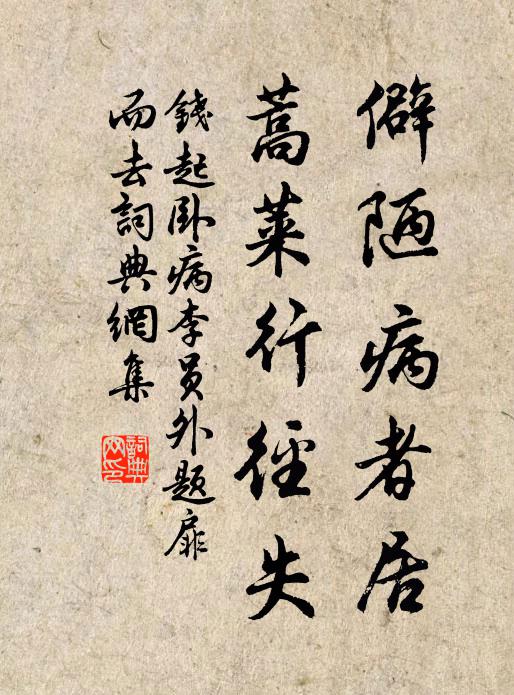 僻陋病者居
蒿莱行徑失
錢起卧病李員外題扉
而去詞典網集
詞典网印